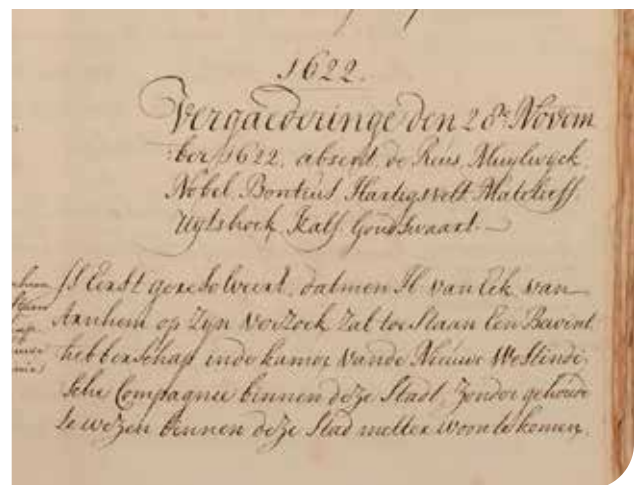 1622.
Vergaederinge den 28e Novem
ber 1622. absent de Reus, Muylwyck,
Nobel, Bontius Hartigvelt Matelieff
Uytshoek, Kalf Goudswaart.
Is Eerst geresolveert, datmen H van Eck van
Arnhem op Zyn verzoek zal toestaan Een Bewint
hebberschap inde kamer vande Nieuwe Westindi
sche Compagnie binnen deze Stadt, zonder gehoude
te wezen binnen deze Stad metter woon te komen,